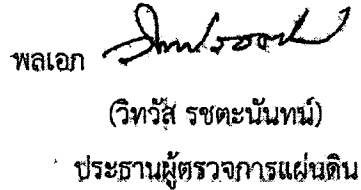 พลเอก
(วิทวัส รชตะนันทน์)
ประธานผู้ตรวจการแผ่นดิน